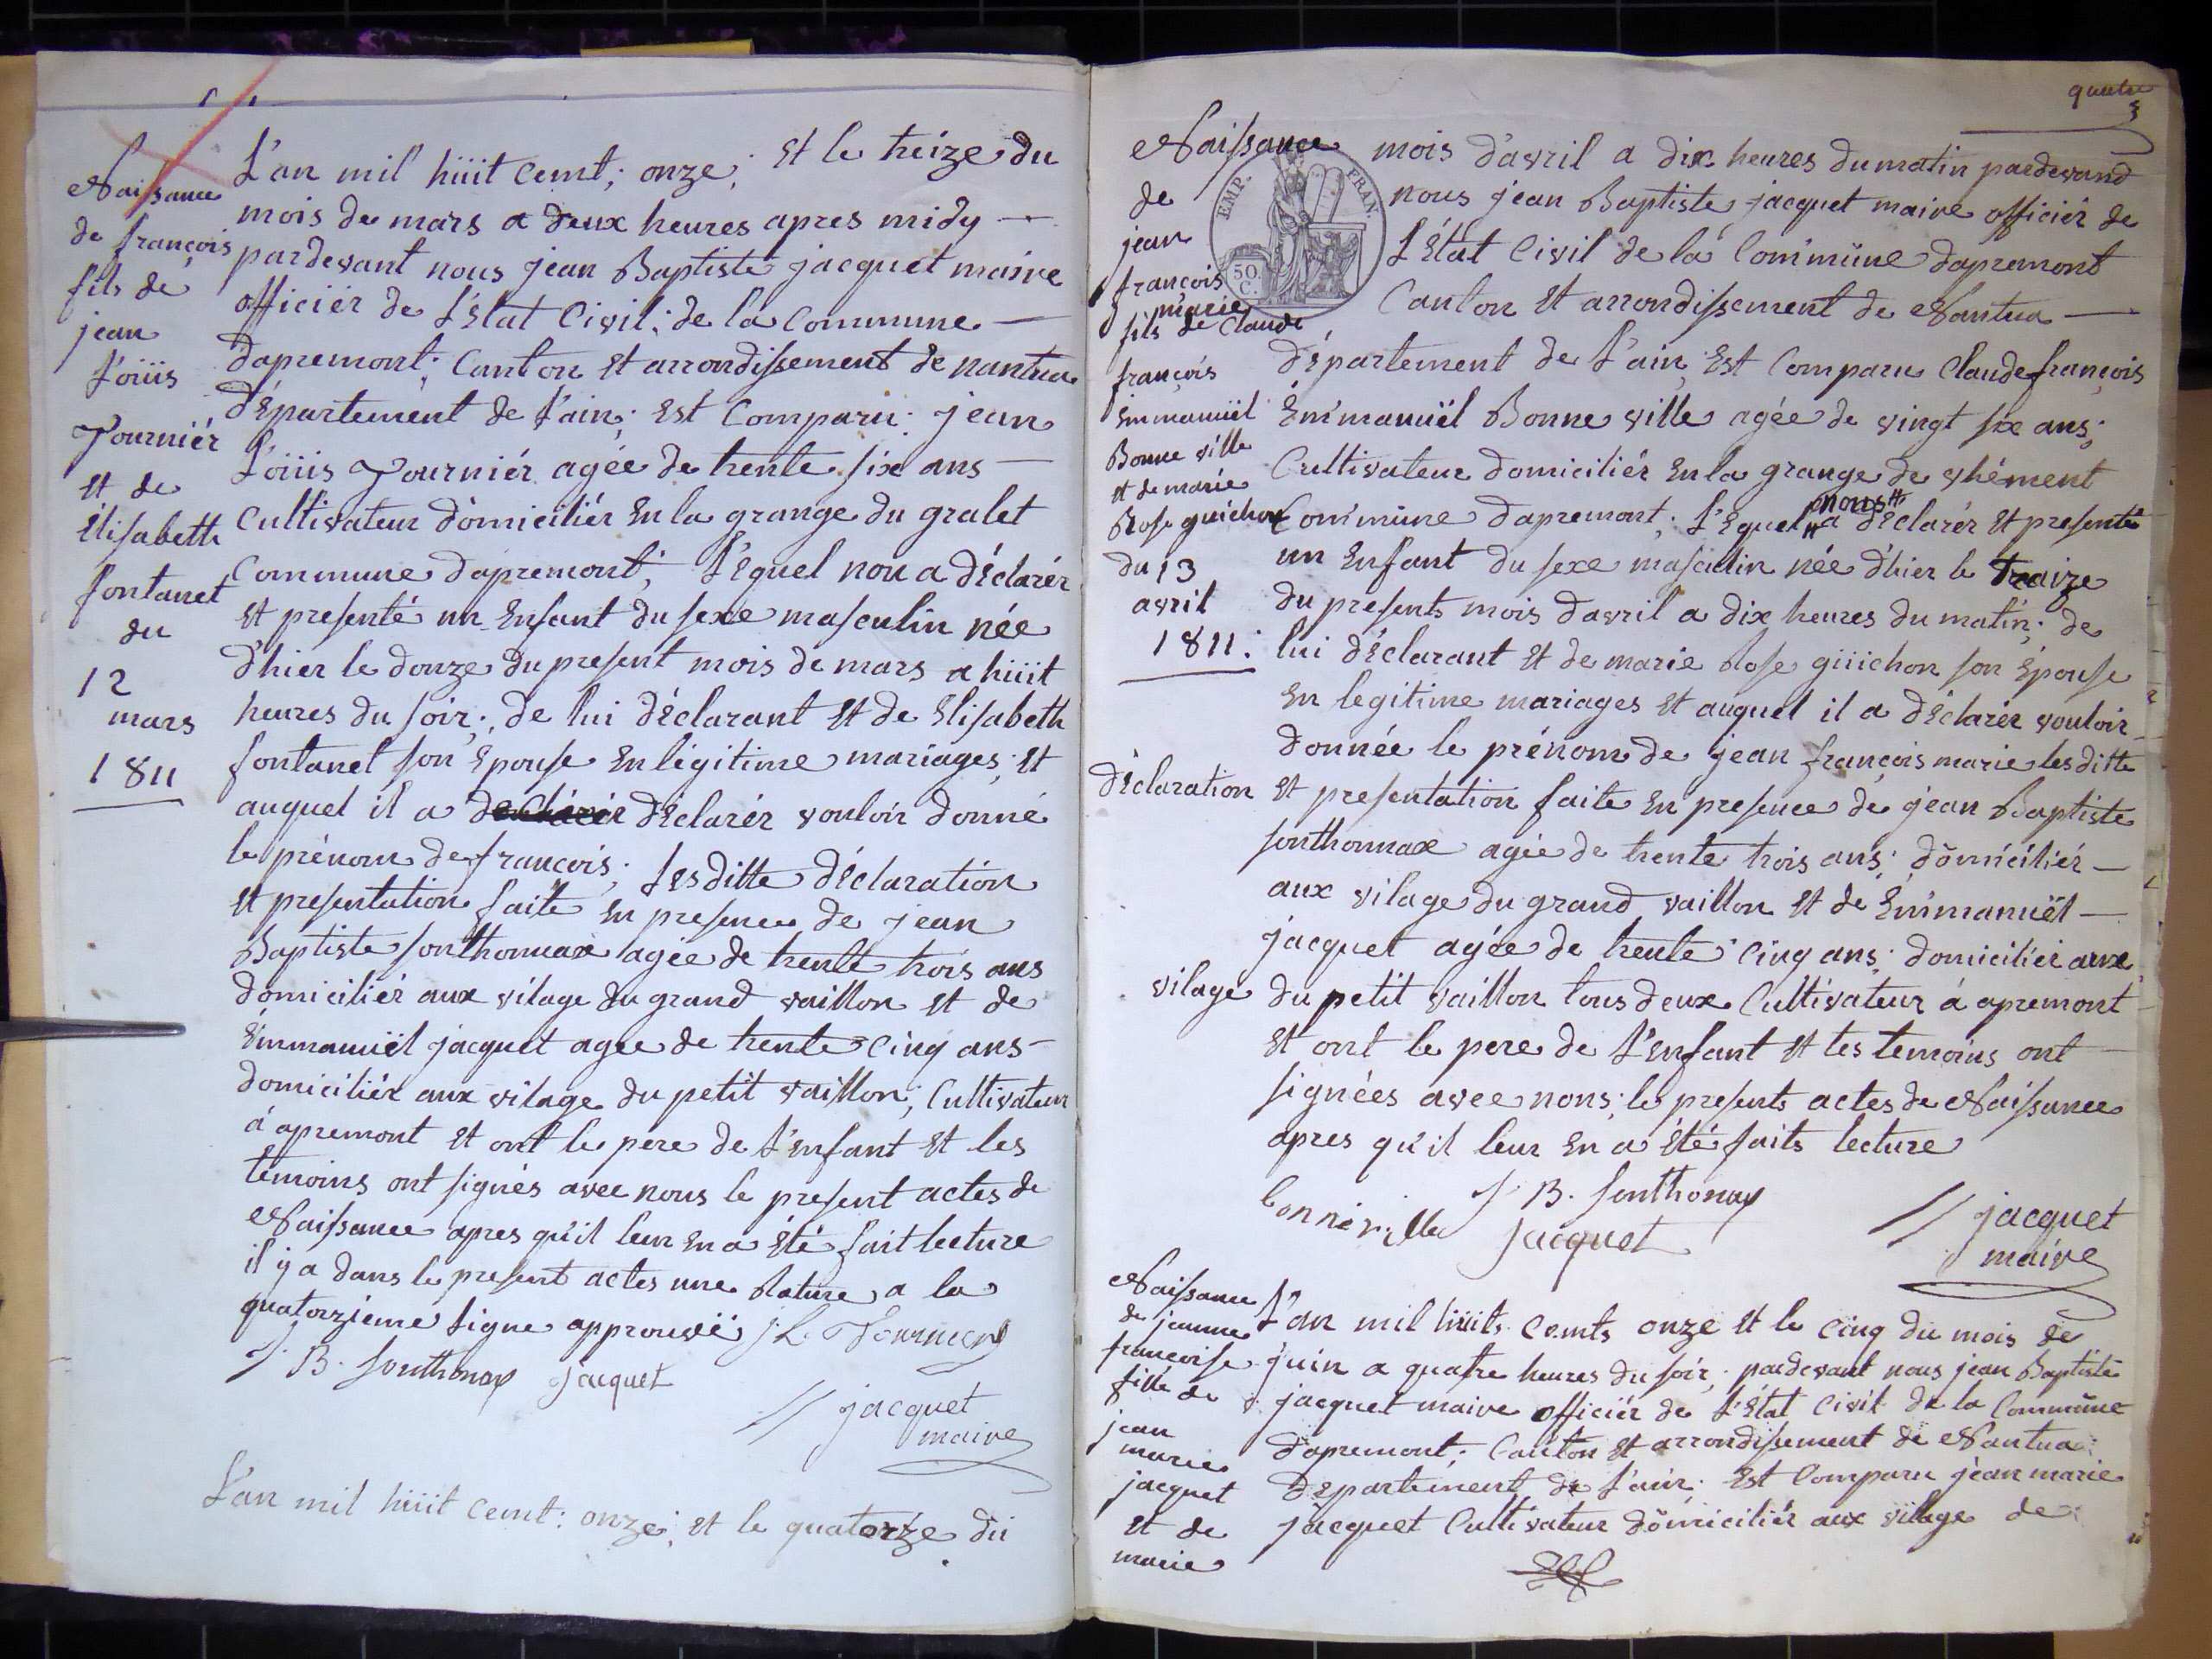 Naissance
de françois
fils de
jean
Loüis
Tourniér
et de
Elisabeth
fontanet
du
12
mars
1811
L'an mil hüit cemt; onze; et le treize du
mois de mars a deux heures apres midy
pardevant nous jean Baptiste jacquet maire
officiér de L'Etat Civil; de la Commune
dapremont; Canton et arrondissement de nantua
département de L'ain; est Comparu; jean
Loüis Tourniér agée de trente six ans
Cultivateur domiciliér en la grange du gralet
Commune dapremont; Lequel nou a déclarér
et presenté un enfant du sexe masculin née
d'hier le douze du present mois de mars a hüit
heures du soir; de lui déclarant et de Elisabeth
fontanet son epouse en légitime mariages; et
auquel il a déclarér vouloir donné
le prénom de françois; Lesditte déclaration
et presentation faite en presence de jean
Baptiste sonthonnax agée de trente trois ans
domiciliér aux vilage du grand vaillon et de
Emmanuël jacquet agée de trente cinq ans
domiciliér aux vilage du petit vaillon; Cultivateur
á apremont et ont le pere de L'enfant et les
témoins ont signés avec nous le present actes de
Naissance apres qu'il leur en a été fait lecture
il y a dans le present actes une Rature a la
quatorziéme Ligne approuvéé j. L. Tournier
J. B. Sonthonax jacquet
jacquet
maire
L'an mil hüit cemt: onze; et le quatorze du
quatre
Naissance
de
jean
françois
marie
fils de Claude
françois
Emmanuël
Bonne ville
et de marie
Rose guichon
du 13
avril
1811:
EMP. FRAN.
50.
C.
mois d'avril a dix heures du matin pardevand
nous jean Baptiste jacquet maire officiér de
L'Etat Civil de la Commune dapremont
Canton et arrondissement de Nantua
département de L'ain; Est Comparu Claude françois
Emmanuël Bonne ville agée de vingt six ans;
Cultivateur domiciliér en la grange de vhément
Commune dapremont; Lequel nous a déclarér et presenté
un enfant du sexe masculin née d'hier le Traize
du presents mois davril a dix heures du matin; de
lui déclarant et de marie Rose güichon son épouse
en legitime mariages et auquel il a déclarér vouloir
donnée le prénom de jean françois marie lesditte
déclaration et presentation faite en presence de jean Baptiste
sonthonnax agée de trente trois ans; domiciliér
aux vilage du grand vaillon et de Emmanuël
jacquet agée de trente cinq ans; domiciliér aux
vilage du petit vaillon tous deux Cultivateur á apremont
et ont le pere de L'enfant et les temoins ont
signées avec nous; le presents actes de Naissance
apres qu'il leur en a été faits lecture
bonneville J. B. Sonthonax
jacquet
jacquet
maire
Naissance
de jeanne
francoise
fille de
jean
marie
jacquet
et de
marie
L'an mil hüits cemts onze et le cinq du mois de
juin a quatre heures du soir; pardevant nous jean Baptiste
jacquet maire officiér de L'état Civil de la Commune
dapremont; Canton et arrondissement de Nantua;
département de L'ain; est Comparu jean marie
jacquet Cultivateur domiciliér aux village de